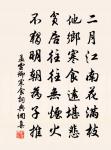 二月江南花滿枝
他鄉寒食遠堪悲
貧居往往無煙火
不獨明朝為子推
孟雲卿寒食詞典網